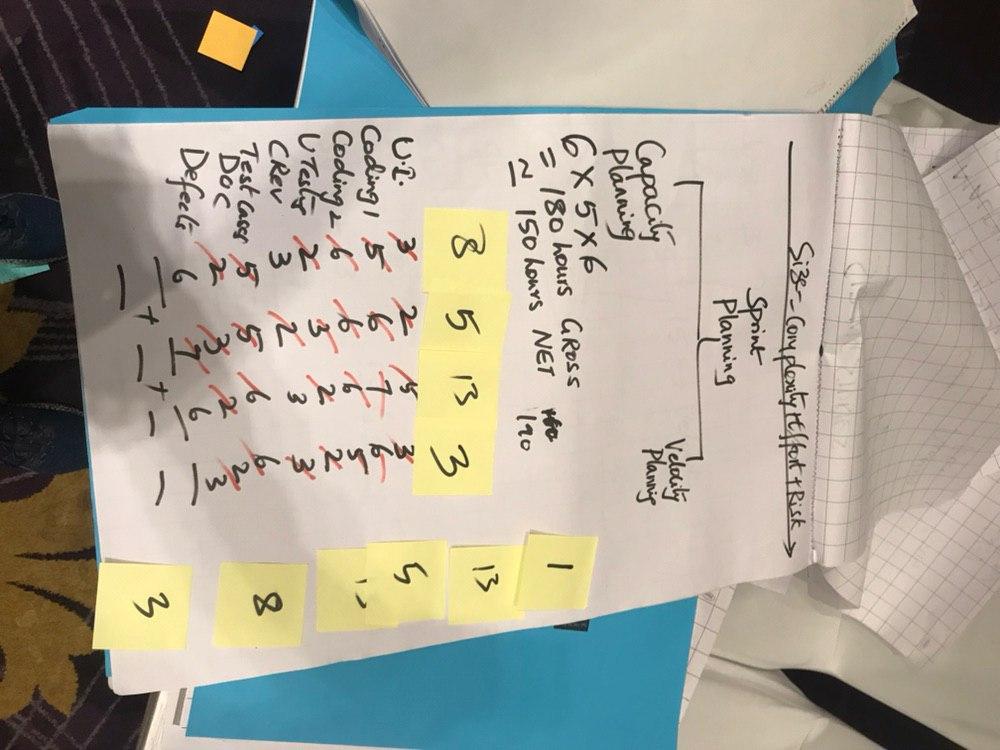 Size = Complexity + Effort + Risk →
Sprint
Planning
Capacity
Planning
Velocity
Planning
6 X 5 X 6
= 180 hours GROSS
≃ 150 hours NET 190
8 5 13 3
U.I. 3 2 5 3
Coding 1 5 6 7 6
Coding 2 6 6 6 5
U Testing 2 3 2 2
C Rev 3 2 3 3
Test Cases 5 5 6 6
Doc 2 3 2 2
Defects 6 7 6 3
+ +
1
13
5
8
3